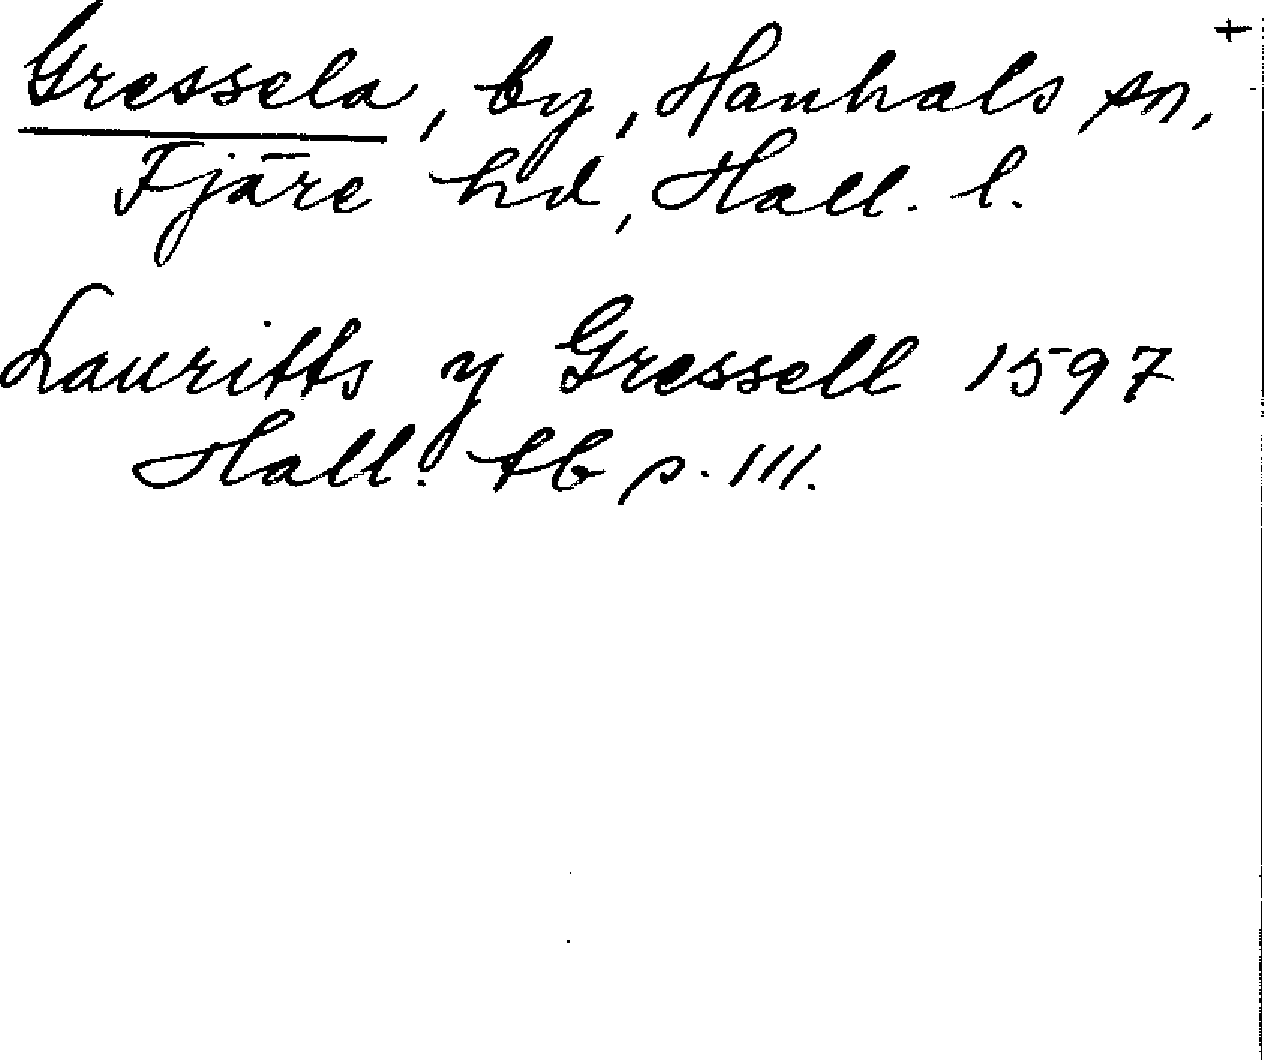 Gressela, by, Hanhals sn,
Fjäre hd, Hall. l.
Lauritts y Gressell 1597
Hall. tb s. 111.